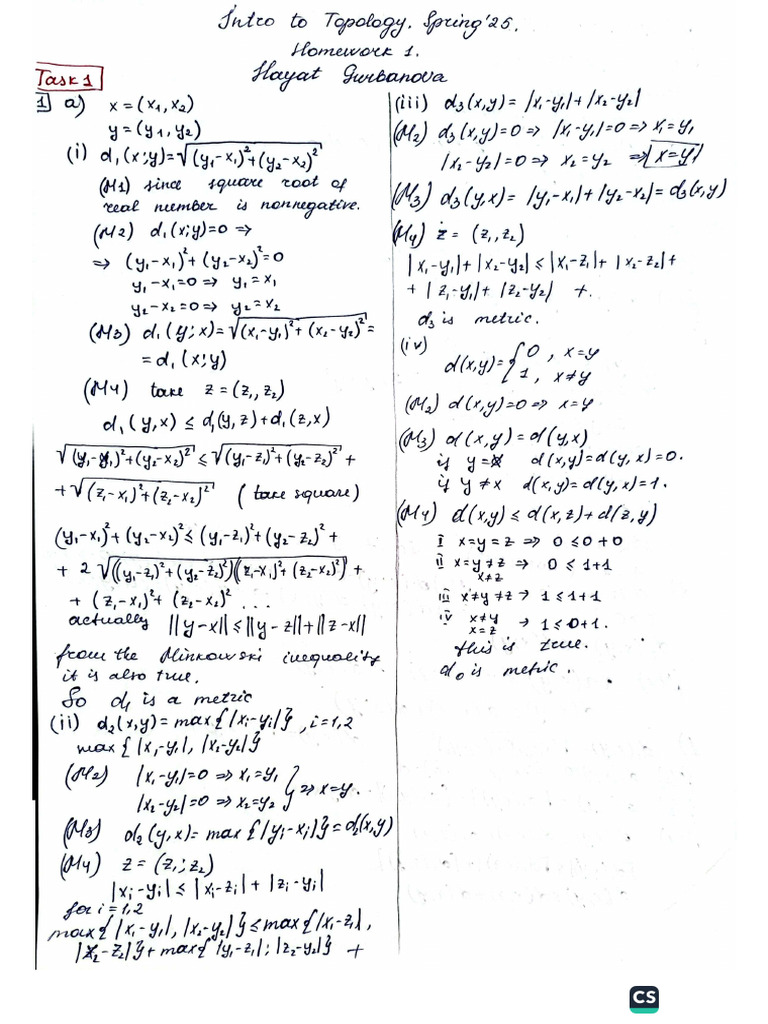 Intro to Topology. Spring '25.
Homework 1.
Hayat Gurbanova
Task 1
1] a) x = (x₁, x₂)
y = (y₁, y₂)
(i) d₁(x;y) = √((y₁-x₁)²+(y₂-x₂)²)
(M1) since square root of
real number is nonnegative.
(M2) d₁(x;y)=0 =>
=> (y₁-x₁)²+(y₂-x₂)²=0
y₁-x₁=0 => y₁=x₁
y₂-x₂=0 => y₂=x₂
(M3) d₁(y;x)=√((x₁-y₁)²+(x₂-y₂)²)=
= d₁(x;y)
(M4) take z=(z₁,z₂)
d₁(y,x) ≤ d₁(y,z)+d₁(z,x)
√((y₁-x₁)²+(y₂-x₂)²) ≤ √((y₁-z₁)²+(y₂-z₂)²) +
+ √((z₁-x₁)²+(z₂-x₂)²) (take square)
(y₁-x₁)²+(y₂-x₂)² ≤ (y₁-z₁)²+(y₂-z₂)² +
+ 2 √((y₁-z₁)²+(y₂-z₂)²)((z₁-x₁)²+(z₂-x₂)²) +
+ (z₁-x₁)²+(z₂-x₂)² ...
actually ||y-x|| ≤ ||y-z||+||z-x||
from the Minkowski inequality
it is also true.
So d₁ is a metric
(ii) d₂(x,y) = max{|xᵢ-yᵢ|}, i=1,2
max{|x₁-y₁|, |x₂-y₂|}
(M2) |x₁-y₁|=0 => x₁=y₁
|x₂-y₂|=0 => x₂=y₂ } => x=y.
(M3) d₂(y,x)= max{|yᵢ-xᵢ|}=d₂(x,y)
(M4) z=(z₁;z₂)
|xᵢ-yᵢ| ≤ |xᵢ-zᵢ| + |zᵢ-yᵢ|
for i=1,2
max{|x₁-y₁|, |x₂-y₂|} ≤ max{|x₁-z₁|,
|x₂-z₂|} + max{|y₁-z₁|; |z₂-y₂|} +
(iii) d₃(x,y) = |x₁-y₁|+|x₂-y₂|
(M2) d₃(x,y)=0 => |x₁-y₁|=0 => x₁=y₁
|x₂-y₂|=0 => x₂=y₂ => x=y
(M3) d₃(y,x) = |y₁-x₁|+|y₂-x₂|=d₃(x,y)
(M4) z = (z₁,z₂)
|x₁-y₁|+|x₂-y₂| ≤ |x₁-z₁|+|x₂-z₂|+
+|z₁-y₁|+|z₂-y₂| +.
d₃ is metric.
(iv)
d(x,y)={0, x=y
1, x≠y
(M2) d(x,y)=0 => x=y
(M3) d(x,y)=d(y,x)
is y=x d(x,y)=d(y,x)=0.
is y≠x d(x,y)=d(y,x)=1.
(M4) d(x,y) ≤ d(x,z)+d(z,y)
I x=y=z => 0≤0+0
II x=y≠z => 0≤1+1
x≠z
III x≠y≠z → 1≤1+1
IV x≠y → 1≤0+1.
x=z
this is true.
d₀ is metric.
CS